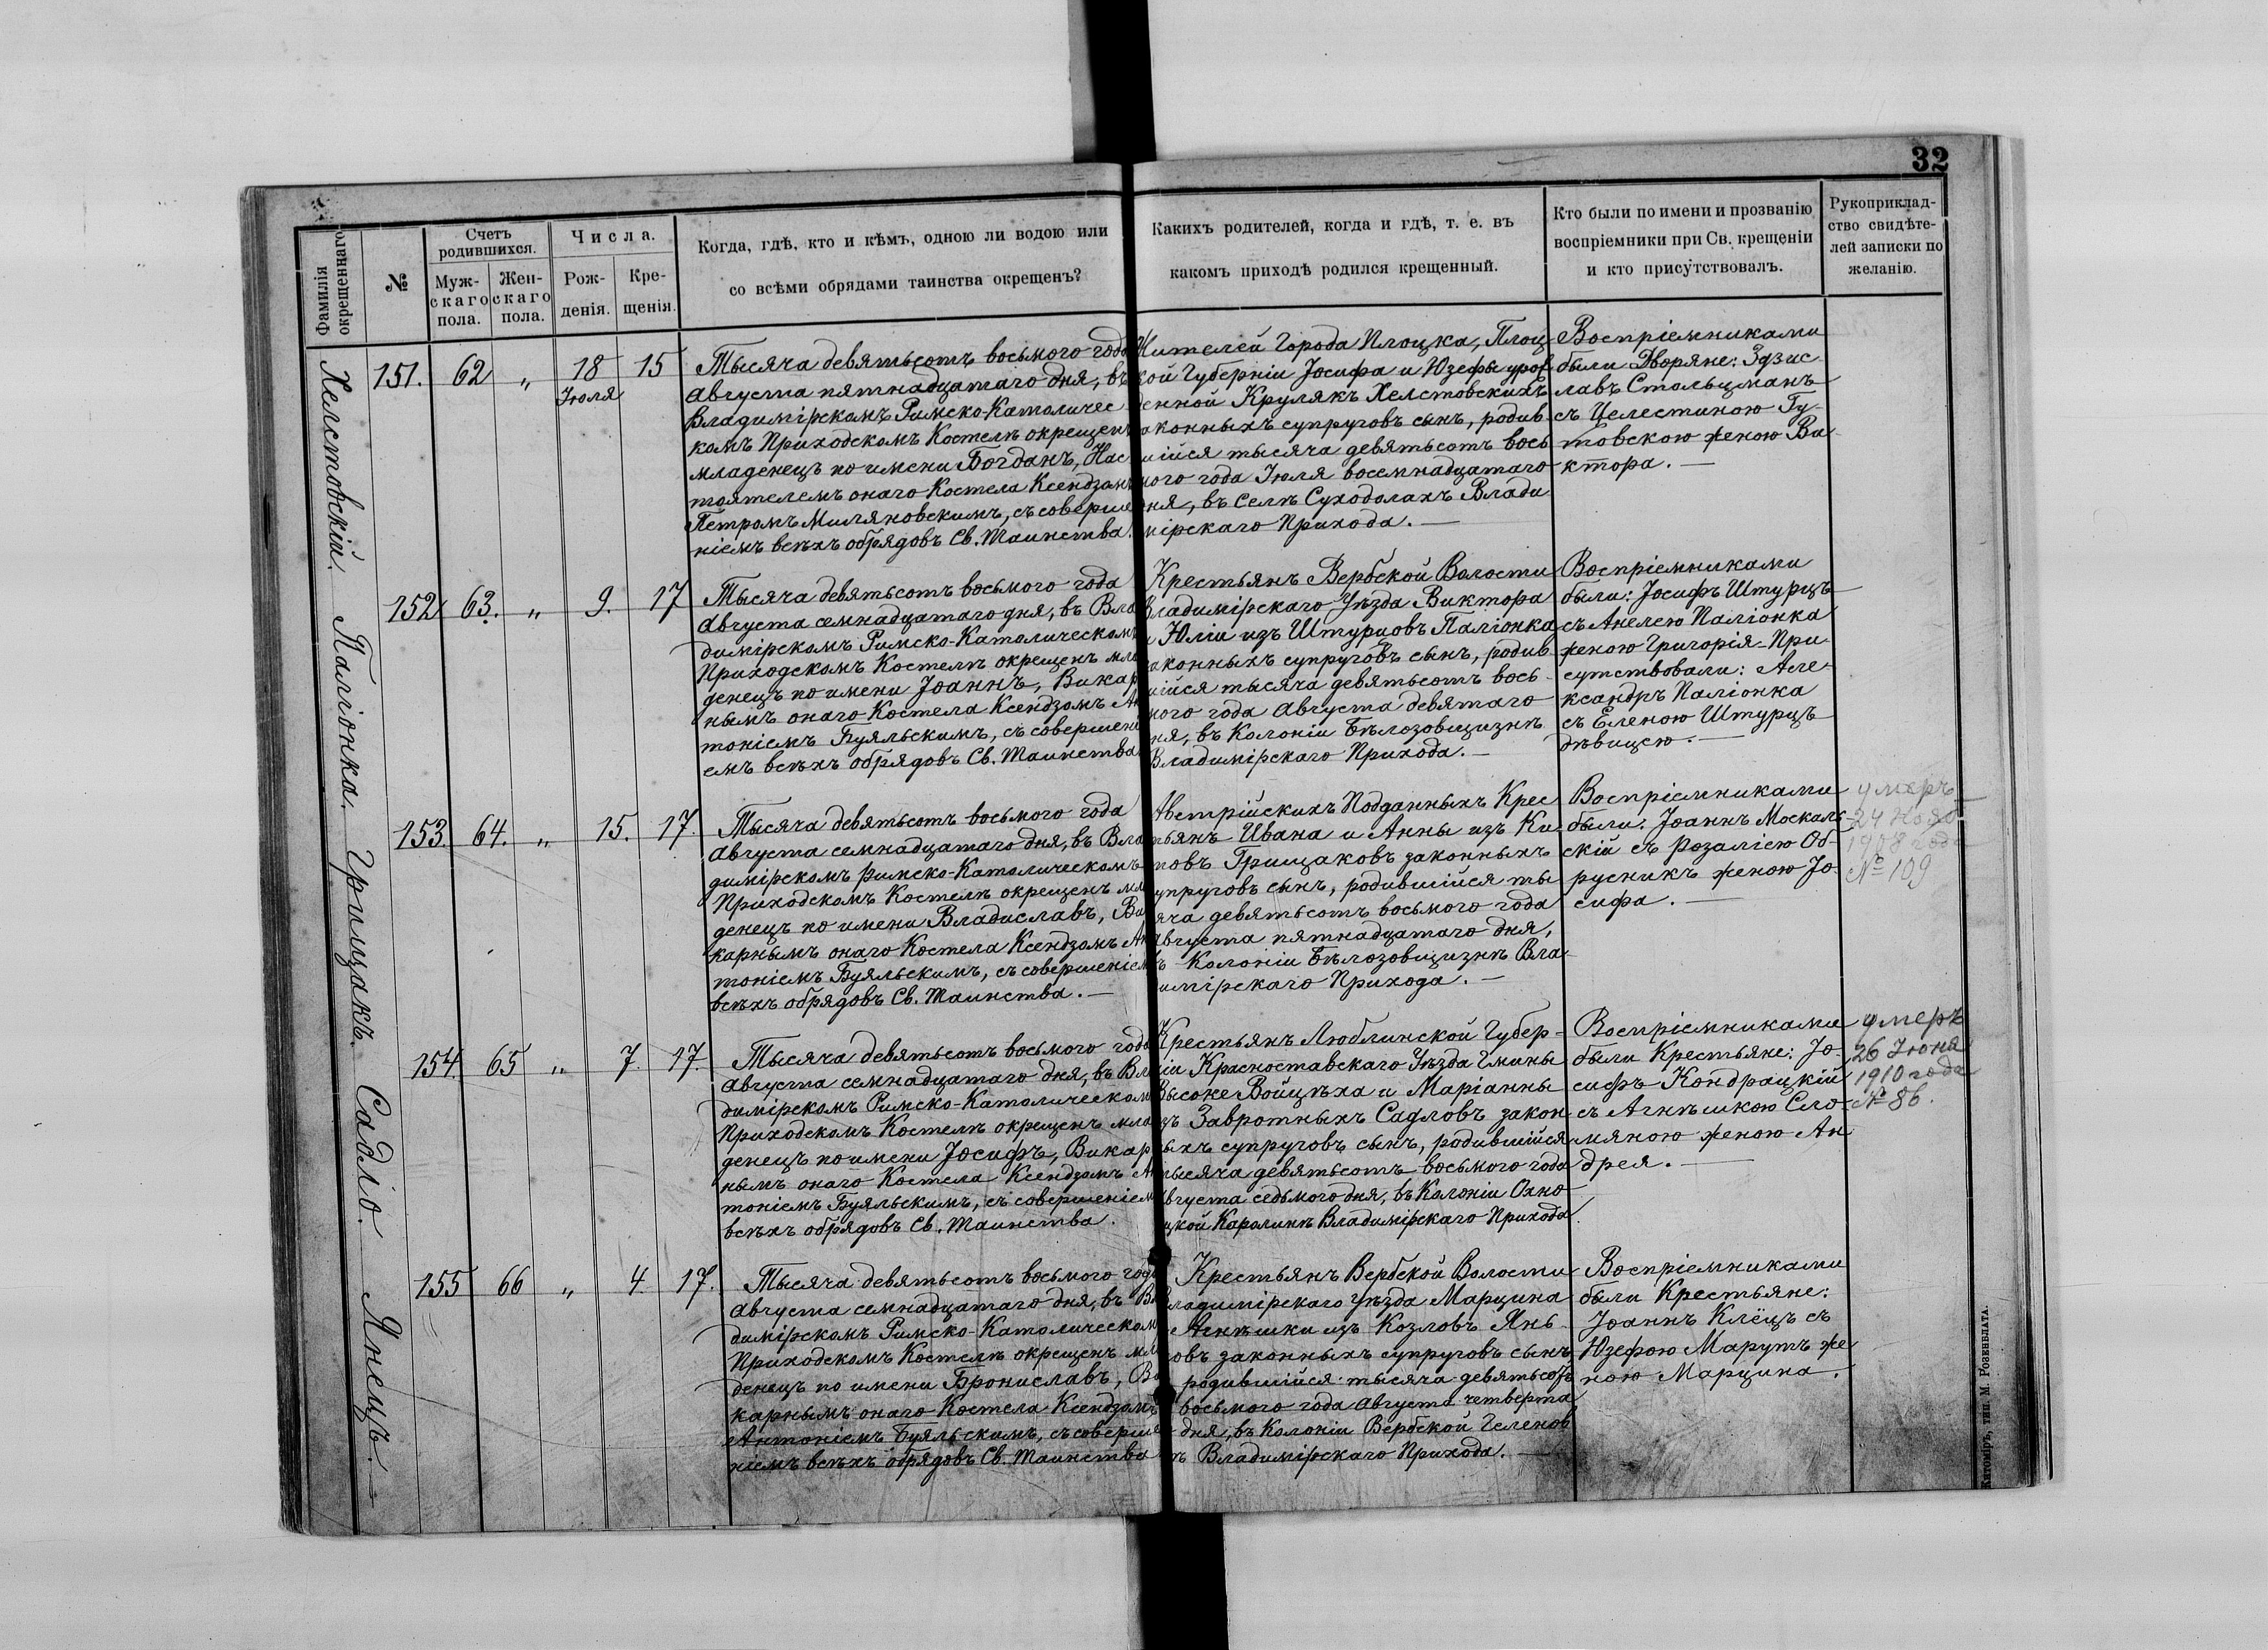 32
Фамилія окрещеннаго
№
Счетъ родившихся.
Муж-скаго пола.
Жен-скаго пола.
Числа.
Рож-денія.
Кре-щенія.
Когда, гдѣ, кто и кѣмъ, одною ли водою или
со всѣми обрядами таинства окрещенъ?
Какихъ родителей, когда и гдѣ, т. е. въ
какомъ приходѣ родился крещенный.
Кто были по имени и прозванію
воспріемники при Св. крещеніи
и кто присутствовалъ.
Рукоприклад-
ство свидѣте-
лей записки по
желанію.
Хелстовскій.
151. 62 „ 18 Іюля 15
Тысяча девятьсотъ восьмого года
Августа пятнадцатаго дня, въ
Владимірскомъ Римско-Католичес
комъ Приходскомъ Костелѣ окрещенъ
младенецъ по имени Богданъ, Нас
тоятелемъ онаго Костела Ксендзомъ
Петромъ Миляновскимъ, съ соверше
ніемъ всѣхъ обрядовъ Св. Таинства.
Жителей Города Плоцка, Плоц
кой Губерніи Іосифа и Юзефы урож
денной Крулякъ Хелстовскихъ
аконныхъ супруговъ сынъ, родив
шійся тысяча девятьсотъ вось
мого года Іюля восемнадцатаго
дня, въ Селѣ Суходолахъ Влади
мірскаго Прихода. —
Воспріемниками
были Дворяне: Здзис-
лавъ Стольцманъ
съ Целестиною Гу-
товскою женою Ви-
ктора. —
Паліонка.
152. 63. „ 9. 17
Тысяча девятьсотъ восьмого года
Августа семнадцатаго дня, въ Вла
димірскомъ Римско-Католическомъ
Приходскомъ Костелѣ окрещенъ мла
денецъ по имени Іоаннъ, Викар
нымъ онаго Костела Ксендзомъ Ан
тоніемъ Буяльскимъ, съ совершені
емъ всѣхъ обрядовъ Св. Таинства
Крестьянъ Вербской Волости
Владимірскаго Уѣзда Виктора
и Юліи изъ Штурцовъ Паліонка
аконныхъ супруговъ сынъ, родив
шійся тысяча девятьсотъ вось-
мого года Августа девятаго
ня, въ Колоніи Бѣлозовщизнѣ
Владимірскаго Прихода. —
Воспріемниками
были: Іосифъ Штурцъ
съ Анелею Паліонка
женою Григорія-При-
сутствовали: Але-
ксандръ Паліонка
съ Еленою Штурцъ
дѣвицею. —
Грищакъ.
153. 64. „ 15. 17.
Тысяча девятьсотъ восьмого года
Августа семнадцатаго дня, въ Вла
димірскомъ Римско-Католическомъ
Приходскомъ Костелѣ окрещенъ мла
денецъ по имени Владиславъ, Ви
карнымъ онаго Костела Ксендзомъ Ан
тоніемъ Буяльскимъ, съ совершеніемъ
всѣхъ обрядовъ Св. Таинства. —
Австрійскихъ Подданныхъ Крес
тьянъ Ивана и Анны изъ Ки-
повъ Грищаковъ законныхъ
супруговъ сынъ, родившійся ты
сяча девятьсотъ восьмого года
Августа пятнадцатаго дня,
въ Колоніи Бѣлозовщизнѣ Вла-
имірскаго Прихода. —
Воспріемниками
были: Іоаннъ Москаль-
скій съ Розаліею Об-
русникъ женою Іо-
сифа. —
умеръ
24 Нояб
1908 года
№ 109
Садло.
154. 65 „ 7. 17.
Тысяча девятьсотъ восьмого года
Августа семнадцатаго дня, въ Вла
димірскомъ Римско-Католическомъ
Приходскомъ Костелѣ окрещенъ мла
денецъ по имени Іосифъ, Викар
нымъ онаго Костела Ксендзомъ Ан
тоніемъ Буяльскимъ, съ совершеніемъ
всѣхъ обрядовъ Св. Таинства.
Крестьянъ Люблинской Губер-
ніи Красноставскаго Уѣзда Гмины
Высоке Войцѣха и Маріанны
изъ Завротныхъ Садловъ закон
ныхъ супруговъ сынъ, родившійся
тысяча девятьсотъ восьмого года
Августа седьмого дня, въ Колоніи Охно
вской Каролинѣ Владимірскаго Прихода.
Воспріемниками
были Крестьяне: Іо-
сифъ Кондрацкій
съ Агнѣшкою Сло-
мяною женою Ан
дрея. —
умеръ
26 Іюня
1910 года
№ 86.
Янецъ. —
155 66 „ 4. 17.
Тысяча девятьсотъ восьмого года
Августа семнадцатаго дня, въ Вла
димірскомъ Римско-Католическомъ
Приходскомъ Костелѣ окрещенъ мла
денецъ по имени Брониславъ, Ви
карнымъ онаго Костела Ксендзомъ
Антоніемъ Буяльскимъ, съ соверше
ніемъ всѣхъ обрядовъ Св. Таинства
Крестьянъ Вербской Волости
Владимірскаго Уѣзда Марцина
Агнѣшки изъ Козловъ Янь-
овъ законныхъ супруговъ сынъ
родившійся тысяча девятьсотъ
восьмого года Августа четверта
дня, въ Колоніи Вербской Геленов
ѣ Владимірскаго Прихода. —
Воспріемниками
были Крестьяне:
Іоаннъ Клёцъ съ
Юзефою Марутъ же
ною Марцина.
Житоміръ, тип. М. Розенблата.